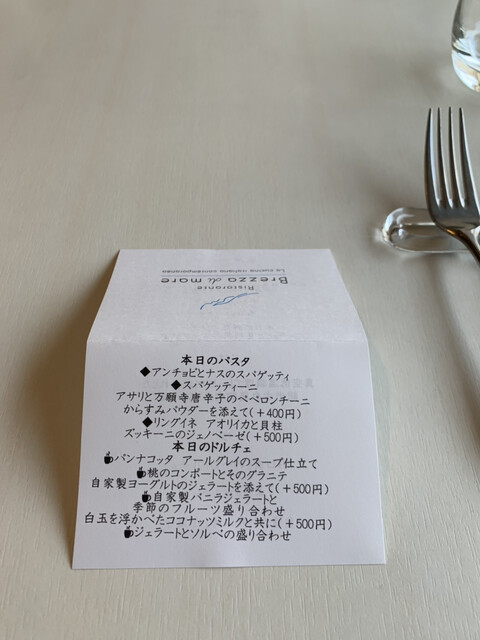 Ristorante
Brezza di mare
La cucina italiana contemporanea
本日のパスタ
◆アンチョビとナスのスパゲッティ
◆スパゲッティーニ
アサリと万願寺唐辛子のペペロンチーニ
からすみパウダーを添えて(+400円)
◆リングイネ アオリイカと貝柱
ズッキーニのジェノベーゼ(+500円)
本日のドルチェ
パンナコッタ アールグレイのスープ仕立て
桃のコンポートとそのグラニテ
自家製ヨーグルトのジェラートを添えて(+500円)
自家製バニラジェラートと
季節のフルーツ盛り合わせ
白玉を浮かべたココナッツミルクと共に(+500円)
ジェラートとソルベの盛り合わせ